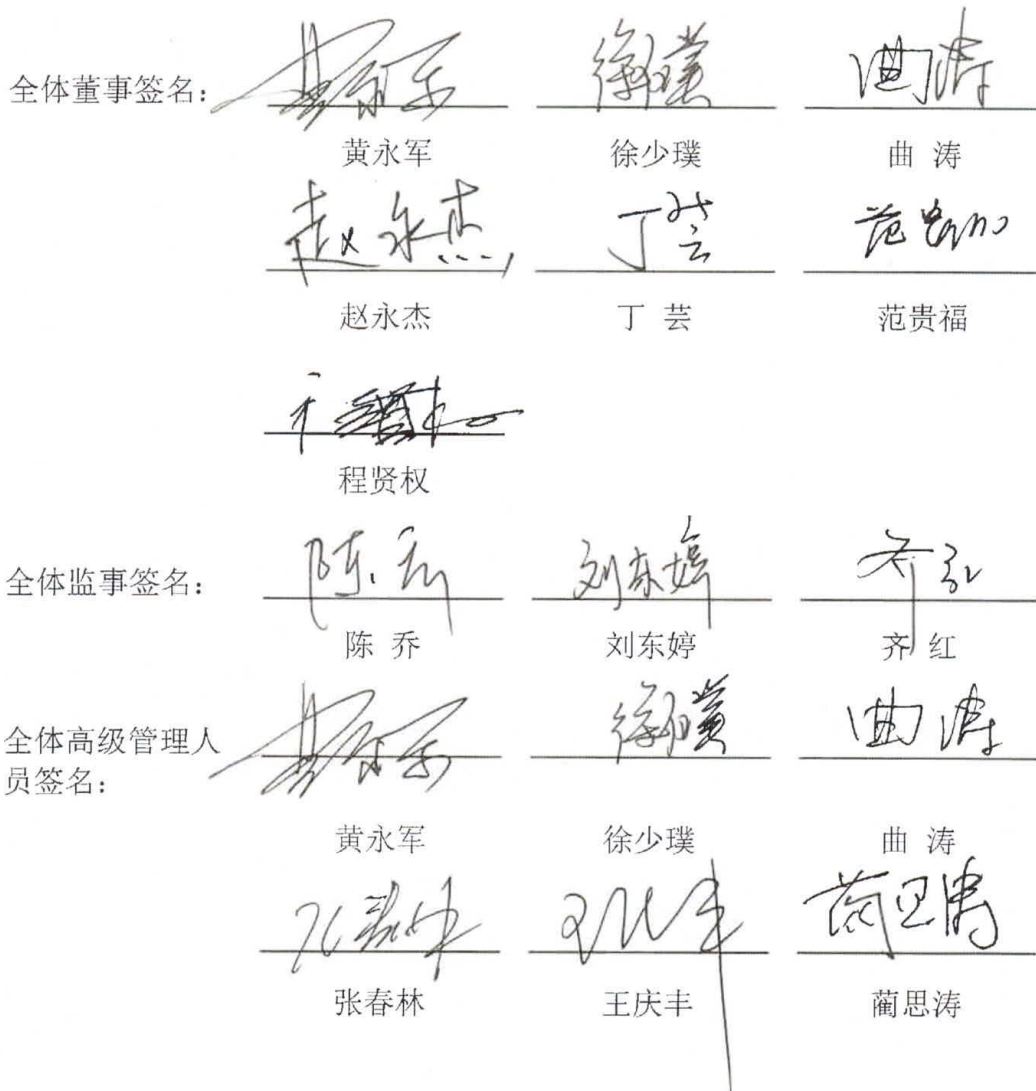 全体董事签名：
黄永军 徐少璞 曲 涛
赵永杰 丁芸 范贵福
赵永杰 丁 芸 范贵福
程贤权
陈乔 刘东婷 齐红
全体监事签名：
陈 乔 刘东婷 齐 红
全体高级管理人
员签名：
黄永军 徐少璞 曲 涛
张春林 王庆丰 蔺思涛